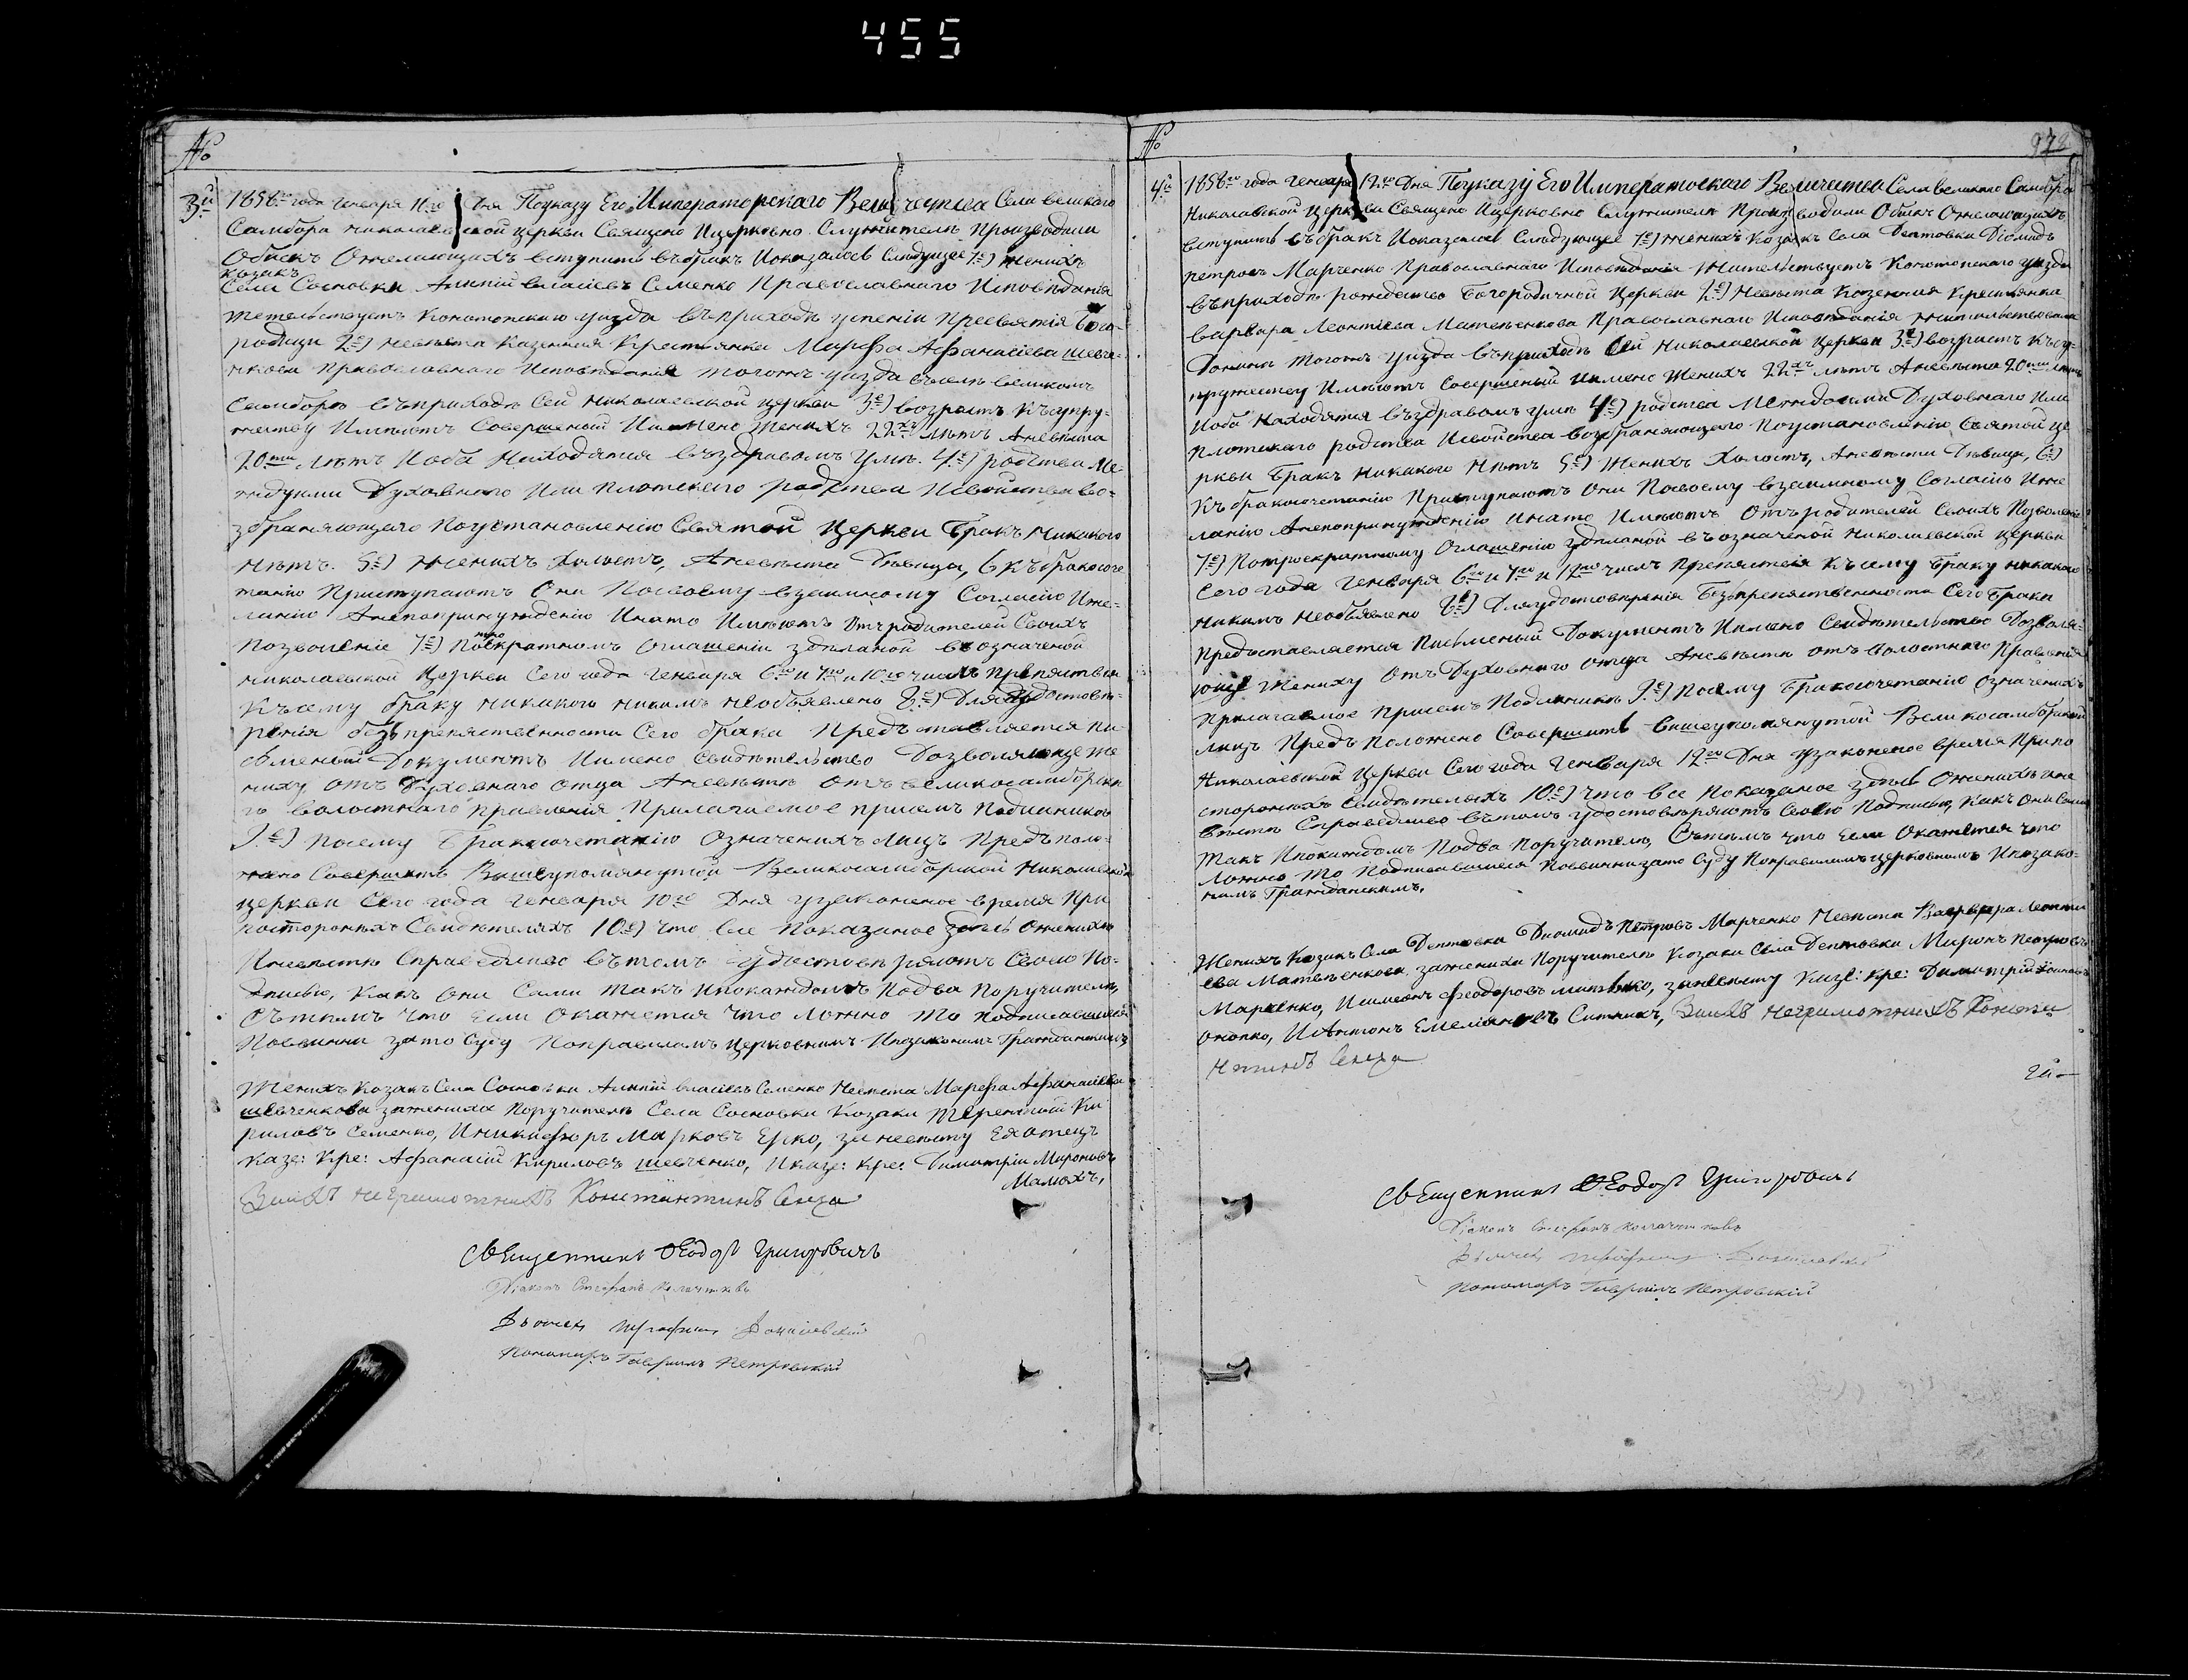 455
№
3й
1858го года Генваря 10го Дня По указу Его Императорскаго Величества Села великаго
Самбора николаевской церкви Священо ицерковно Служители производили
Обыск Ожелающихъ вступить въ бракъ Иоказалось Следущее 1е) женихъ
козакъ
Села Сосновки Алипій власіевъ Семенко Православнаго Исповѣданія
жительствуетъ Конотопскаго уизда въ приходѣ успенія Пресвятія Бого-
родици 2е) невѣста Казенная Крестьянка Марфа Афанасіева шевче-
нкова православнаго Исповѣданія тогожъ уизда Въселѣ великомъ
Самборѣ въ приходѣ Сей николаевской церкви 3е) возрастъ Къ супру-
жеству Имѣютъ Совершеный Именно Женихъ 22хъ лѣтъ Аневѣста
20ти лѣтъ Иоба Находятся въздравомъ умѣ. 4е) родства Ме-
ждуими Духовнаго Или плотскаго родства Исвойства во-
збраняющаго Поустановленію Святой Церкви Бракъ никакого
Нѣтъ. 5е) женихъ холостъ, Аневѣста Дѣвица, 6 Къ бракосоче
танію Приступаютъ Они Посвоему взаимному Согласію Иже-
ланію Анепопринужденію Инато Имѣютъ Отъ родителей Своихъ
Позволеніе 7е) Потрократномъ Оглашеніи зделаной въозначеной
николаевской Церкви Сего года Генваря 6го и 7го и 10го числъ препятствія
Късему браку никакого никимъ необъявлено 8е) Для Удостовѣ-
ренія безъ препятственности Сего брака Предъставляется пи-
сьменый Документъ Имено Свидѣтельство Дозволяюще же
ниху отъ Духовнаго отца Аневѣсте отъ великосамборска
го волостнаго Правленія Прилагаемое присемъ Подлиникѣ
9е) Посему Бракосочетанію Означенихъ лицъ Предъ поло-
жено Совершить Вишеупомянутой Великосамборской Николаевской
церкви Сего года Генваря 10го Дня узаконеное время При
постороннихъ Свидѣтеляхъ 10е) Что все показаное здесь Оженихѣ
Иневѣстѣ Справедливо въ томъ удостовѣряютъ Своею По-
дписью, Какъ Они Сами Такъ Ипокаждомъ Подва Поручителя,
Сътѣмъ что Если Окажется что ложно То подписавшіеся
Повинни зато Суду Поправиламъ Церковнимъ Ипозаконамъ Гражданскимъ
Женихъ Козакъ Села Сосновки Алипій власіевъ Семенко Невѣста Марфа Афанасіева
шевченкова зажениха Поручители Села Сосновки Козаки Терентій Ки
риловъ Семенко, Иникифоръ Марковъ Ерко, заневѣсту Ея отецъ
Казе: Кре: Афанасій Кириловъ шевченко, Иказе: Кре: Димитрій Мироновъ
Малюхъ,
Вмисто неграмотнихъ Константинъ Сенза
Священникъ Феодоръ Григоровичъ
Діаконъ Стефанъ Колачниковъ
Дьячекъ Трофимъ
Пономаръ Гавріилъ Петровскій
№
978
4й
1858го года Генваря 12го Дня По указу Его Императоскаго Величества Села великаго Самбора
Николаевской церкви Священо Ицерковно Служители Производили Обыск Ожелающихъ
вступить въ бракъ Иоказалось Слѣдующее 1е) женихъ Козакъ Села Дептовки Діомидъ
петровъ Марченко Православнаго Исповѣданія Жительствуетъ Конотопскаго уизда
въприходѣ рождество Богородичной Церкви 2е) Невѣста Казенная Крестьянка
варвара Леонтіева Матвѣенкова Православнаго Исповѣданія жительствовала
Донинѣ тогожъ уизда въприходѣ Сей Николаевской церкви 3е) возрастъ Късу-
пружеству Имѣютъ Совершеный Имено Женихъ 22хъ лѣтъ Аневѣста 20ти лѣтъ
Иоба Находятся въздравомъ умѣ 4е) родства Междоими Духовнаго Или
плотскаго родства Исвойства возбраняющого Поустановленію Святой це
ркви Бракъ никакого Нѣтъ 5е) Женихъ Холостъ, Аневѣста Дѣвица, 6е)
Къ бракосочетанію Приступаютъ Они Посвоему взаимному Согласію Иже
ланію Анепопринужденію Инато Имѣютъ Отъ родителей Своихъ Позволеніе
7е) Потроекратному Оглашенію зделаной въозначеной николаевской церкви
Сего года Генваря 6го и 7го и 12го числъ Препятствія Късему Браку никакого
никимъ Необъявлено 8е) Дляудостовѣренія Безъпрепятственности Сего Брака
Предъставляется Письменый Документъ Имено Свидѣтельство Дозволя-
юще Жениху Отъ Духовнаго отца Аневѣсти отъ волостнаго Правленія
Прилагаемое присемъ Подлиникѣ 9е) Посему Бракосочетанію Означенихъ
лицъ Предъ положено Совершить вишеупомянутой Великосамборской
Николаевской Церкви Сего года Генваря 12го Дня узаконеное время Припо
стороннихъ Свидѣтеляхъ 10е) Что все Показаное здесь Оженихѣ Ине
вѣстѣ Справедливо въ томъ удостовѣряютъ Своею Подписью, Какъ Они Сами
Такъ Ипокаждомъ Подва Поручителя, Сътѣмъ что Если Окажется что
Ложно То Подписавшіеся Повинни зато Суду Поправиламъ церковнимъ Ипозако-
намъ Гражданскимъ.
Женихъ Козакъ Села Дептовки Диомидъ Петровъ Марченко Невѣста Варвара Леонті
ева Матвѣенкова зажениха Поручители Козаки Села Дептовки Миронъ Петровъ
Марченко, Исимеонъ Феодоровъ, заневѣсту Казе: Кре: Димитрій
Онопко, ИАнтонъ Емеліановъ Ситникъ, Вмисто Неграмотнихъ Конста
нтинъ Сенза
Священникъ Феодоръ Григоровичъ
Діаконъ Стефанъ Колачниковъ
Дьячекъ Трофимъ
Пономаръ Гавріилъ Петровскій